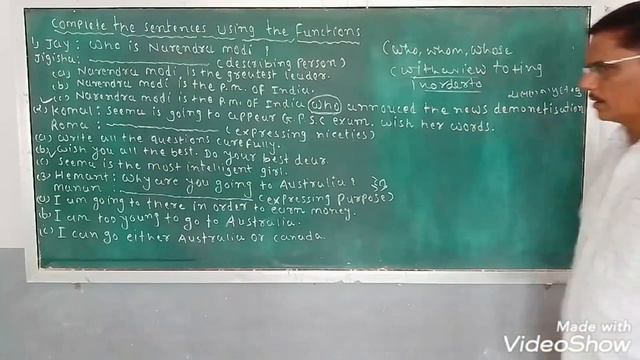 Complete the sentences using the Functions
1) Jay: Who is Narendra modi ?
Jigisha: ______ (describing person)
(a) Narendra modi is the greatest leader.
(b) Narendra modi is the P.m. of India.
(c) Narendra modi is the P.m. of India who announced the news demonetisation
(2) Komal: Seema is going to appear G.P.S.C exam. wish her words.
Roma: ______ (expressing niceties)
(a) Write all the questions carefully.
(b) Wish you all the best. Do your best dear.
(c) Seema is the most intelligent girl.
(3) Hemant: Why are you going to Australia?
manan: ______ (expressing purpose)
(a) I am going to there in order to earn money.
(b) I am too young to go to Australia.
(c) I can go either Australia or canada.
(who, whom, whose
(with a view to +ing
in order to
Made with
VideoShow